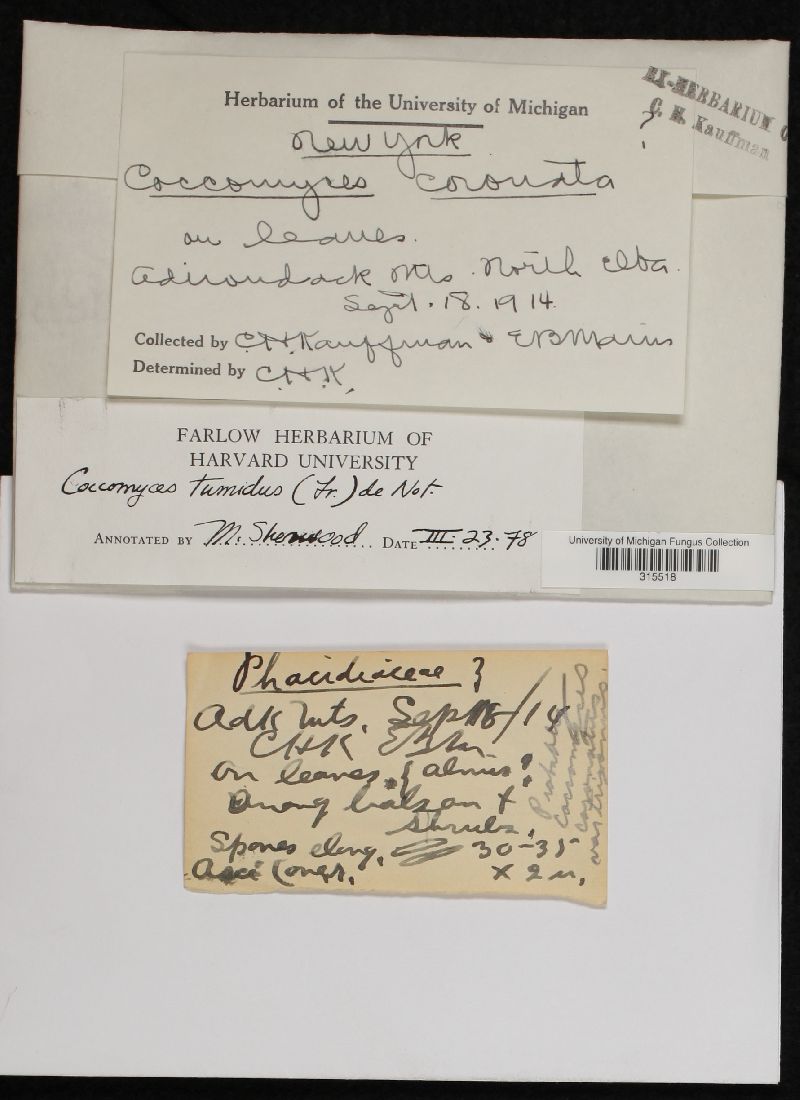 Herbarium of the University of Michigan
EX-HERBARIUM O
C. H. Kauffman
?
New York
Coccomyces coronata
on leaves.
Adirondack Mts. North Elba.
Sept. 18. 1914.
Collected by C.H.Kauffman & EBMains
Determined by C.H.K.
FARLOW HERBARIUM OF
HARVARD UNIVERSITY
Coccomyces tumidus (Fr.) de Not.
ANNOTATED BY M. Sherwood DATE III. 23. 78
University of Michigan Fungus Collection
315518
Phacidiaceae }
Adk Mts. Sep 18/14
CHK EBM
on leaves { alnus?
Among balsam +
shrubs.
Spores elong. 30-35
Asci x 2 u.
Probably
Coccomyces